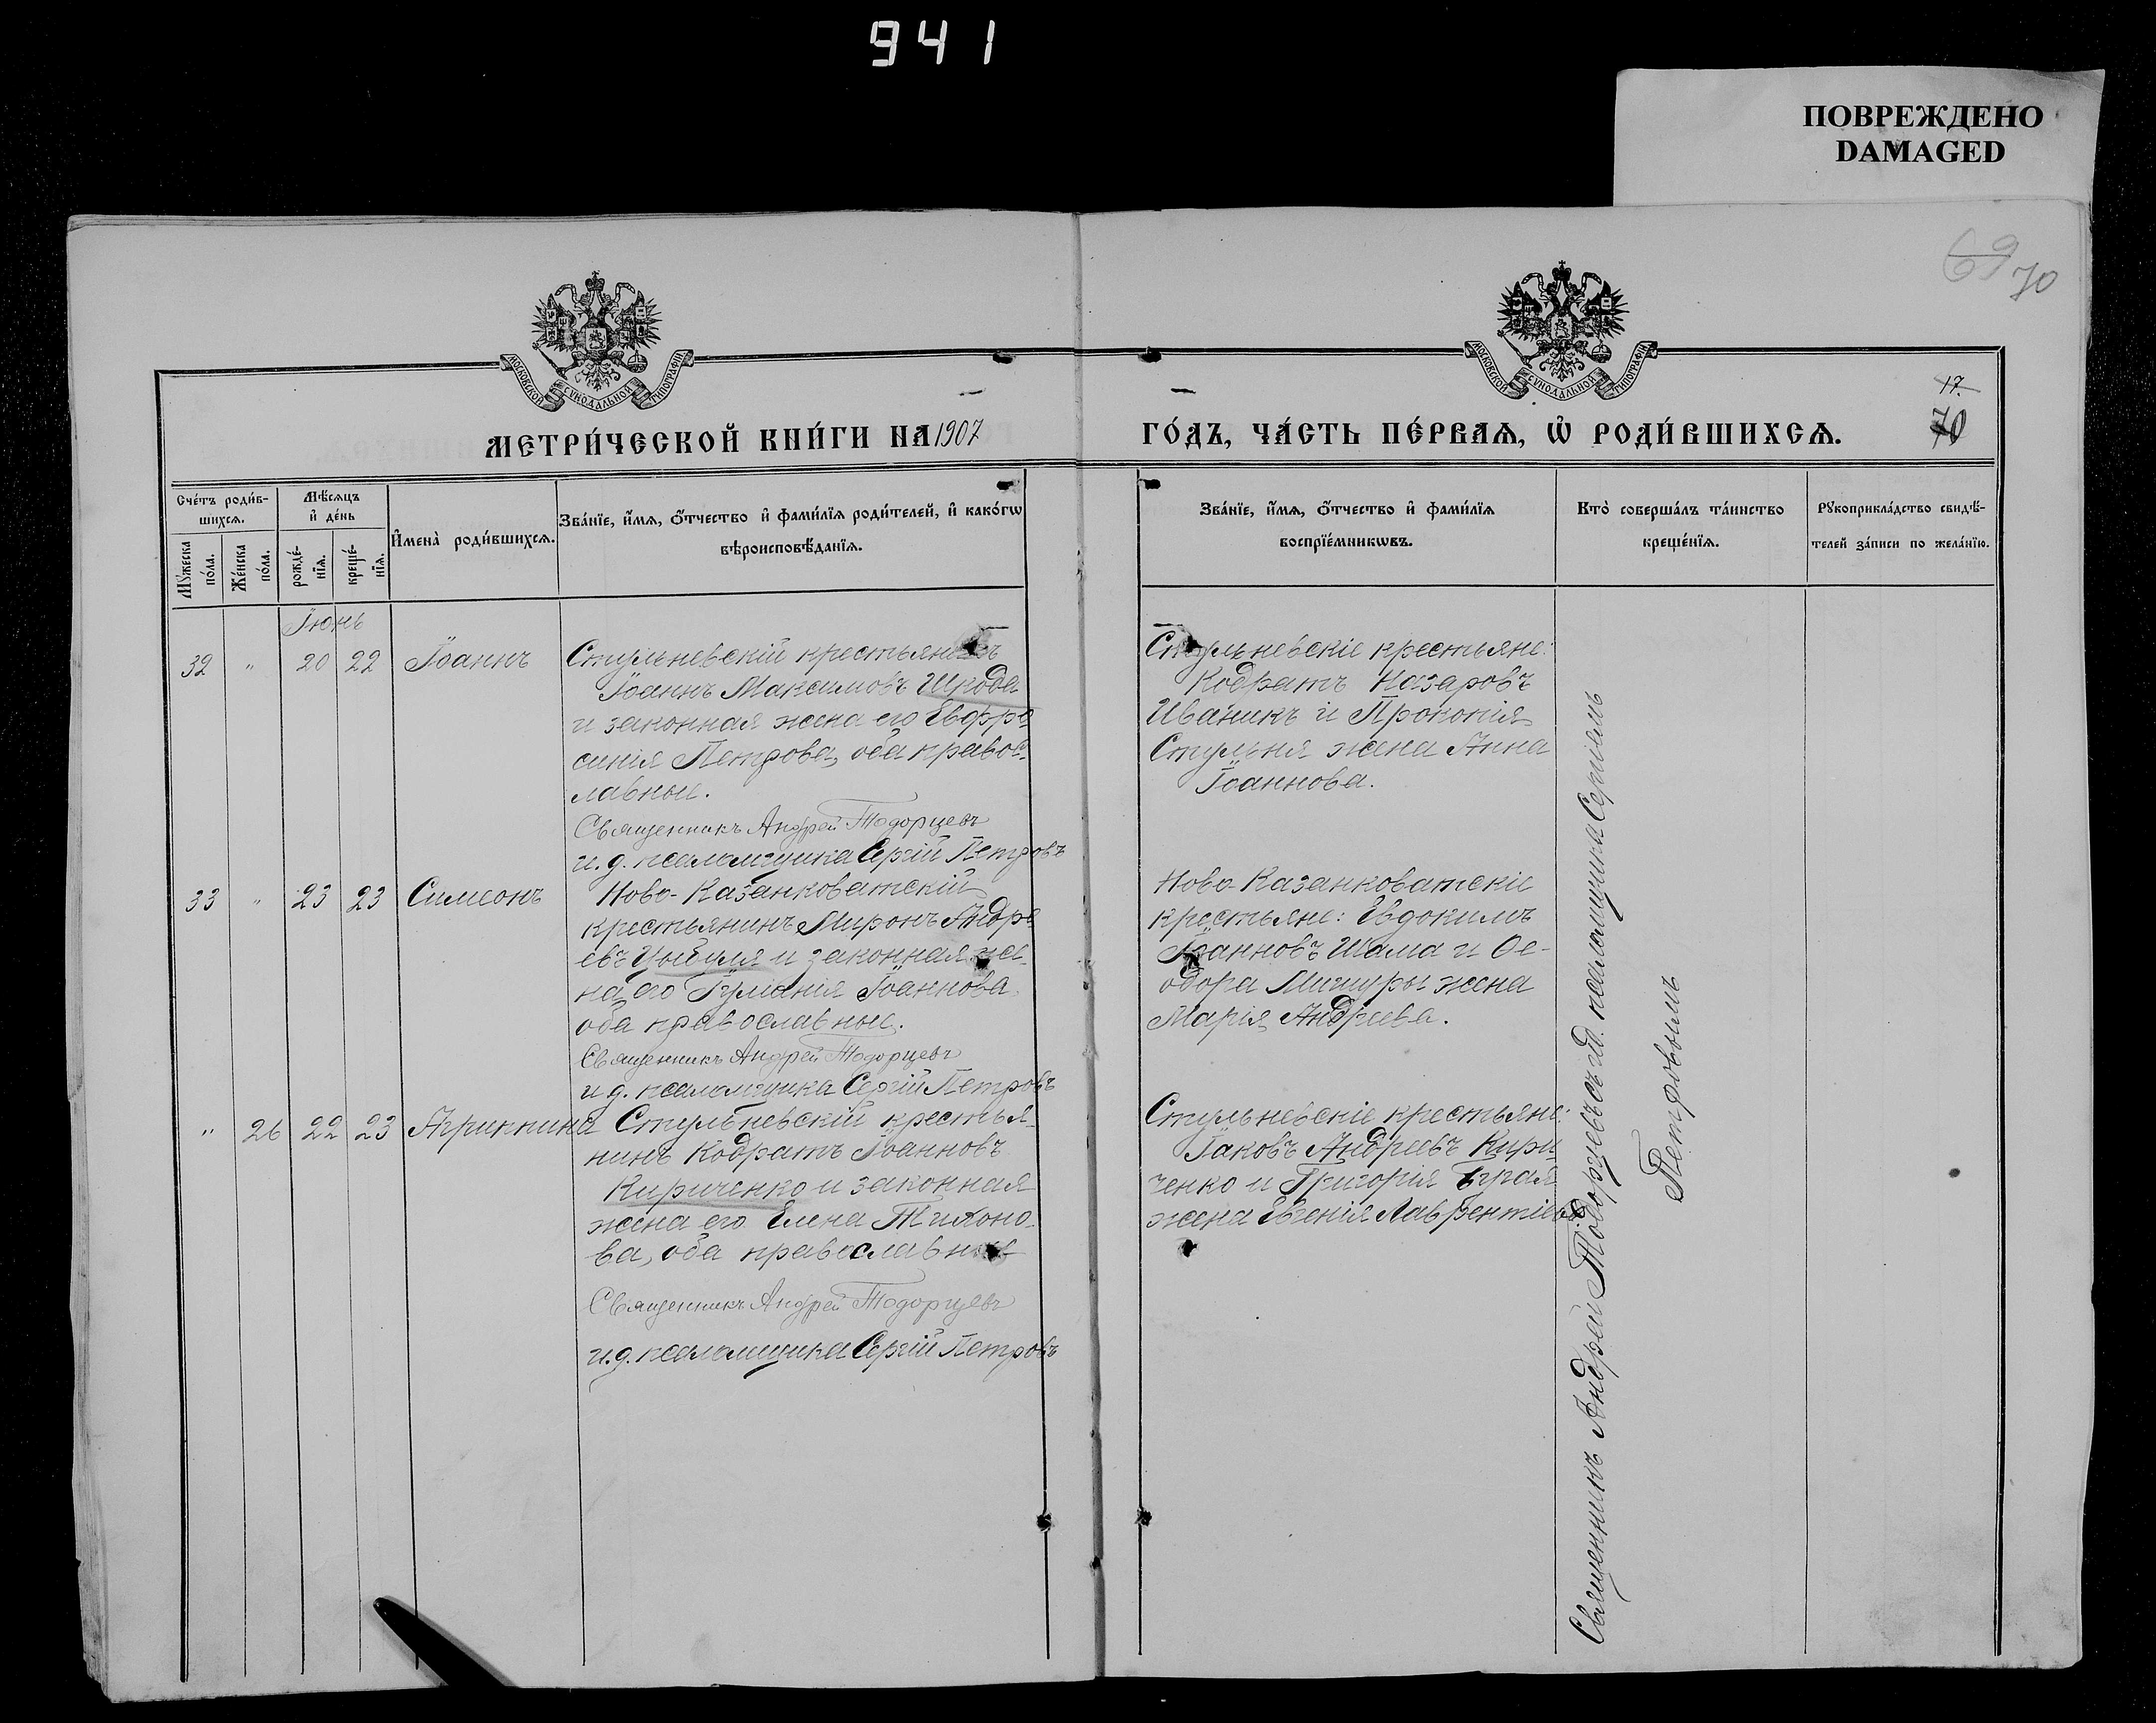 941
ПОВРЕЖДЕНО
DAMAGED
69 70
МОСКОВСКОЙ СУНОДАЛЬНОЙ ТИПОГРАФІИ
МОСКОВСКОЙ СУНОДАЛЬНОЙ ТИПОГРАФІИ
17.
70
МЕТРИ́ЧЕСКОЙ КНИ́ГИ НА 1907
ГО́ДЪ, ЧА́СТЬ ПЕ́РВАѦ, Ѡ҆ РОДИ́ВШИХСѦ.
Сче́тъ роди́в-
шихсѧ.
Мꙋ́жеска
по́ла.
Же́нска
по́ла.
Мѣ́сѧцъ
и҆ де́нь
рожде́-
нїѧ.
креще́-
нїѧ.
И҆мена̀ роди́вшихсѧ.
Зва́нїе, и҆́мѧ, ѻ҆́тчество и҆ фами́лїѧ роди́телей, и҆ како́гѡ
вѣроисповѣ́данїѧ.
Зва́нїе, и҆́мѧ, ѻ҆́тчество и҆ фами́лїѧ
воспрїе́мникѡвъ.
Кто̀ соверша́лъ та́инство
креще́нїѧ.
Рꙋкоприкла́дство свидѣ́-
телей за́писи по жела́нїю.
Іюнь
32 " 20 22 Іоаннъ
Стульневскій крестьянинъ
Іоаннъ Максимовъ Шкода
и законная жена его Евфро
синія Петрова, оба правос-
лавные.
Священникъ Андрей Тодорцевъ
и.д. псаломщика Сергій Петровъ
Стульневскіе крестьяне:
Кодратъ Назаровъ
Иваникъ и Прокопія
Стульня жена Анна
Іоаннова.
33 " 23 23 Симеонъ
Ново-Казанковатскій
крестьянинъ Миронъ Андре
евъ и законная же-
на его Іуліанія Іоаннова,
оба православные.
Священникъ Андрей Тодорцевъ
и д. псаломщика Сергій Петровъ
Ново-Казанковатскіе
крестьяне: Евдокимъ
Іоанновъ Шама и Ѳе-
одора Мишуры жена
Марія Андреева.
" 26 22 23 Агриппина
Стульневскій крестья-
нинъ Кодратъ Іоанновъ
Кириченко и законная
жена его Елена Тихоно-
ва, оба православные
Священникъ Андрей Тодорцевъ
и.д. псаломщика Сергій Петровъ
Стульневскіе крестьяне:
Іаковъ Андреевъ Кири-
ченко и Григорія Бурая
жена Евгенія Лаврентіева
Священникъ Андрей Тодорцевъ съ и.д. псаломщика Сергіемъ
Петровымъ